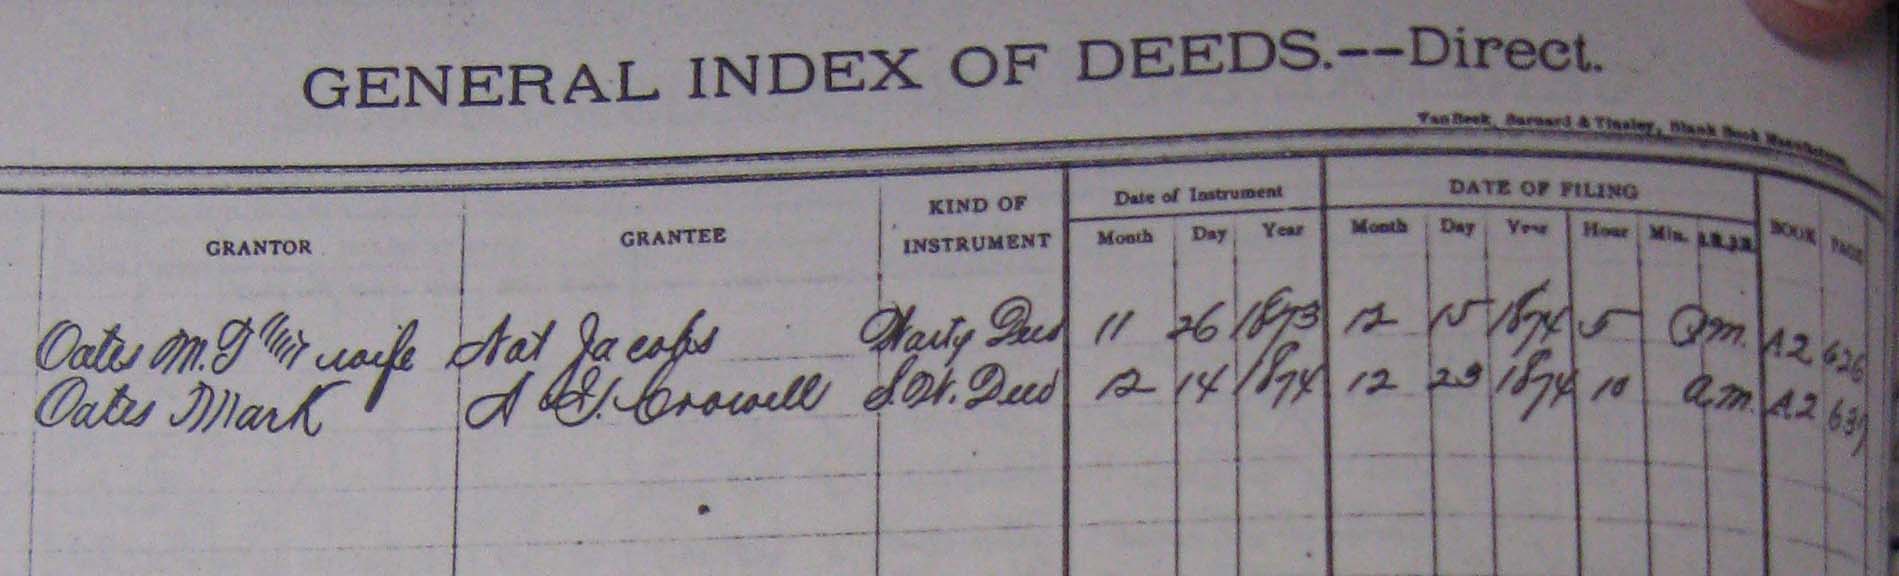 GENERAL INDEX OF DEEDS.--Direct.
Van Beek, Barnard & Tinsley, Blank Book Manufacturers
GRANTOR GRANTEE KIND OF INSTRUMENT Date of Instrument DATE OF FILING BOOK PAGE
Month Day Year Month Day Year Hour Min.
Oates M. T wife Nat Jacobs Warty Deed 11 26 1873 12 15 1874 5 P.M. A2 626
Oates Mark A Crowell S.W. Deed 12 14 1874 12 23 1874 10 a.m. A2 637